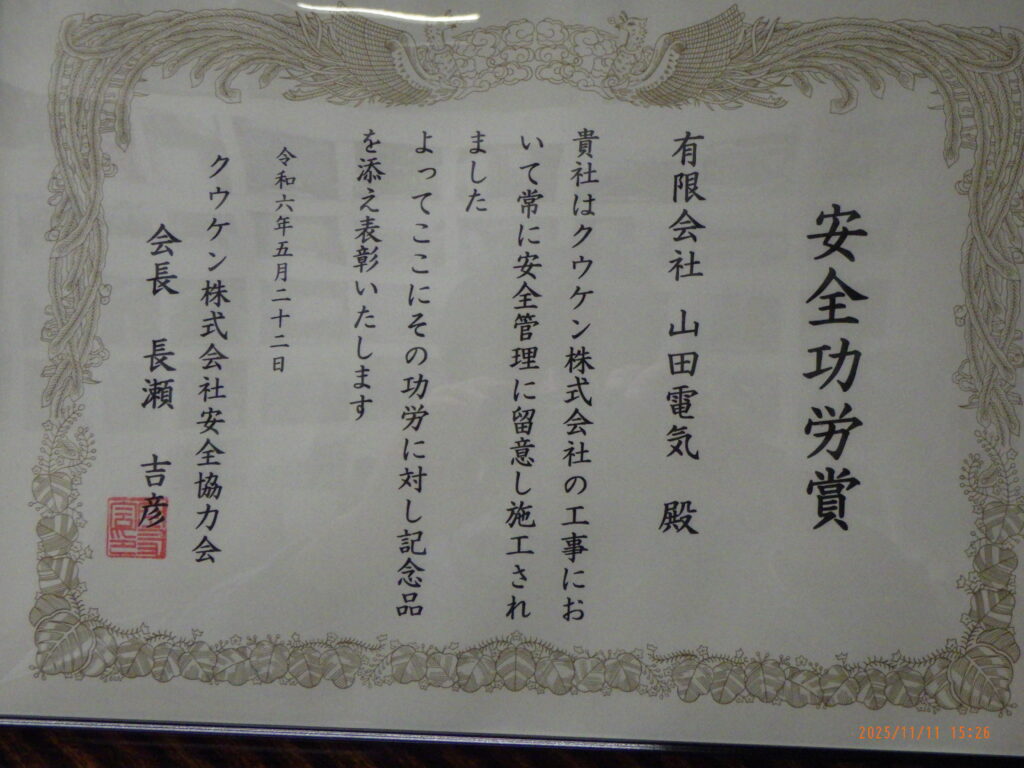 安全功労賞
有限会社 山田電気 殿
貴社はクウケン株式会社の工事にお
いて常に安全管理に留意し施工され
ました
よってここにその功労に対し記念品
を添え表彰いたします
令和六年五月二十二日
クウケン株式会社安全協力会
会長 長瀬 吉彦
2025/11/11 15:26